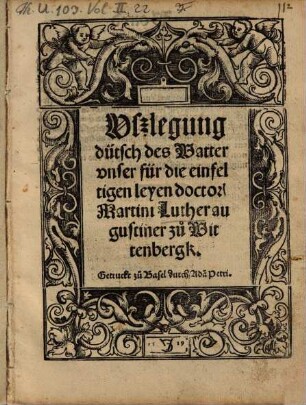 Th. U. 103. Vol. II, 22.
112
Vszlegung
dütsch des Vatter
vnser für die einfel
tigen leyen doctor
Martini Luther au
gustiner zů Wit
tenbergk.
Getruckt zů Basel durch Adā Petri.